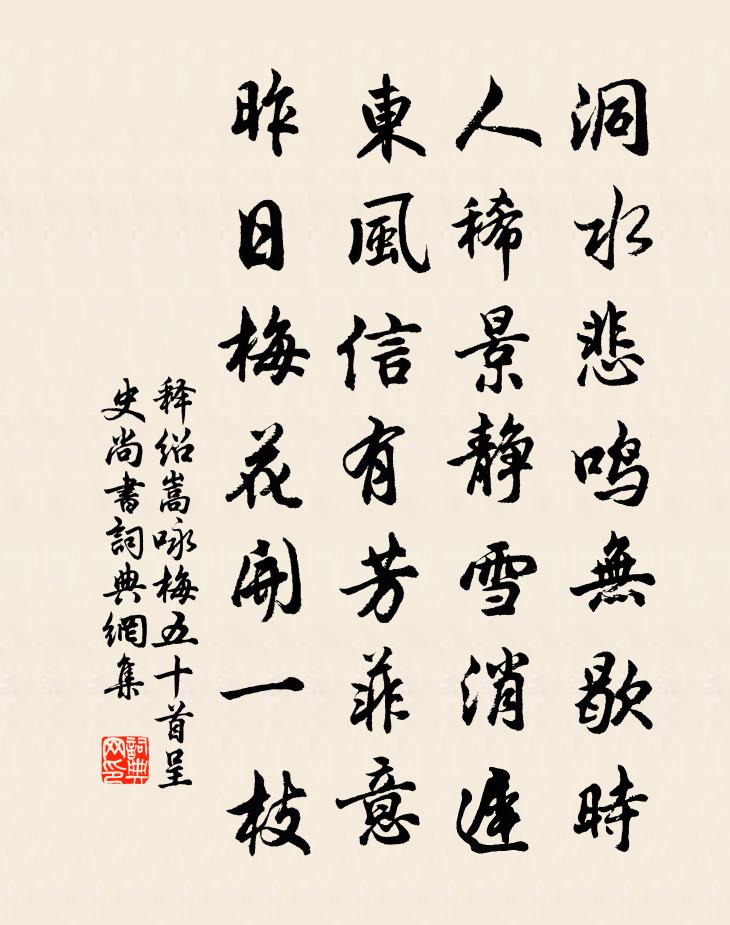 洞水悲鳴無歇時
人稀景靜雪消遲
東風信有芳菲意
昨日梅花開一枝
释绍嵩咏梅五十首呈
史尚書詞典網集
詞典
网印